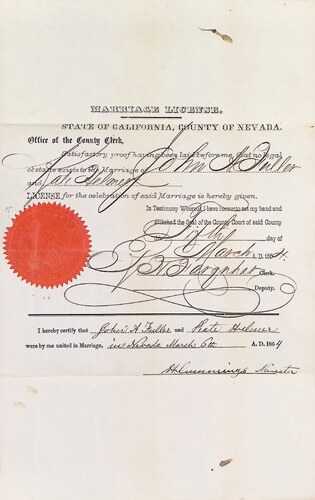 MARRIAGE LICENSE.
STATE OF CALIFORNIA, COUNTY OF NEVADA.
Office of the County Clerk,
Satisfactory proof having been laid before me, that no legal
obstacle exists to the Marriage of John A Fuller
and Kate Helmer
LICENSE for the celebration of said Marriage is hereby given.
In Testimony Whereof, I have hereunto set my hand and
affixed the Seal of the County Court of said County
Fifth day of
March A. D. 1864.
Farquhar Clerk.
Deputy.
I hereby certify that John A Fuller and Kate Helmer
were by me united in Marriage, in Nevada March 6th A. D. 1864
H Cummings Minister